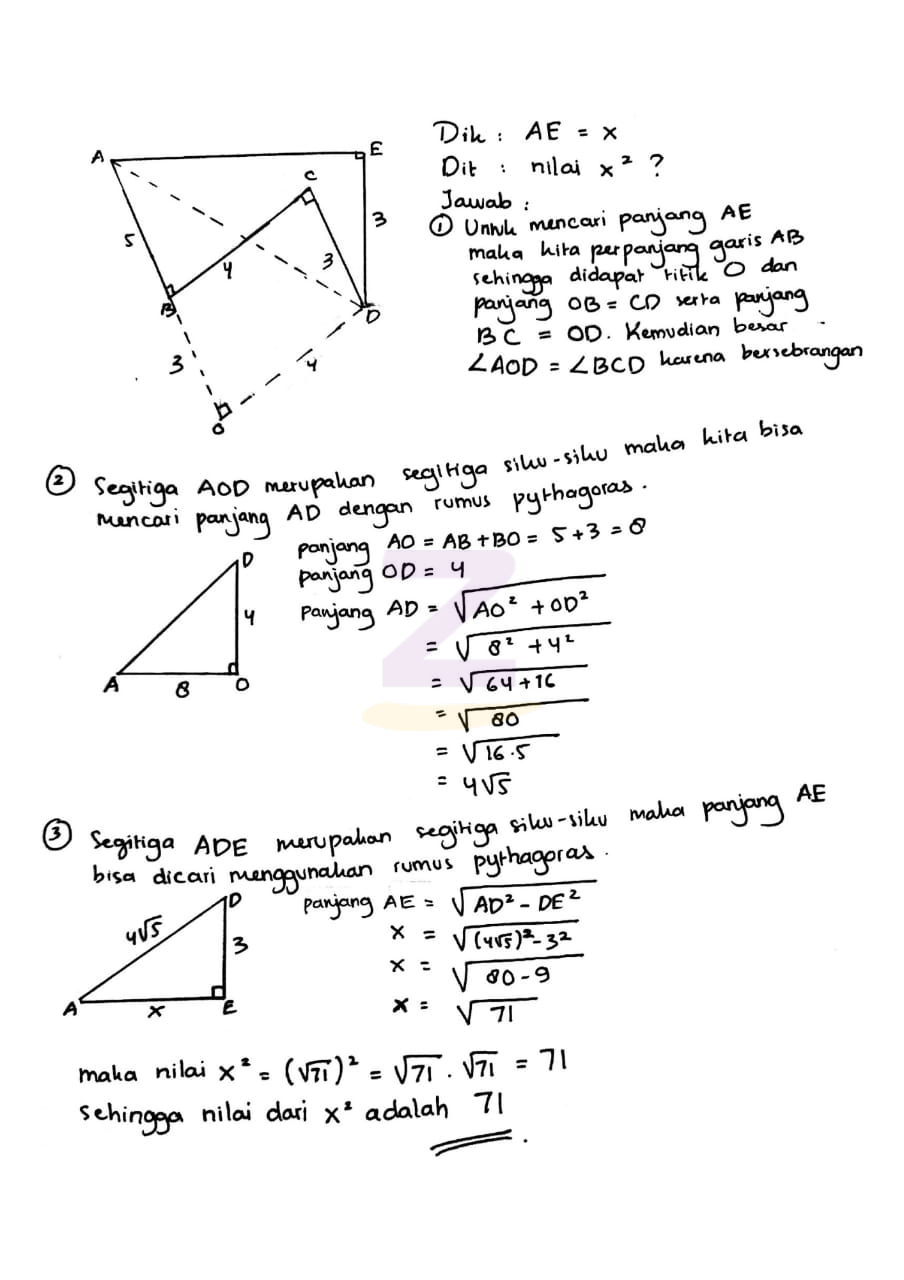 A
E
C
5
4
3
3
B
D
3
4
O
Dik : AE = x
Dit : nilai x² ?
Jawab :
① Untuk mencari panjang AE
maka kita perpanjang garis AB
sehingga didapat titik O dan
panjang OB = CD serta panjang
BC = OD. Kemudian besar
∠AOD = ∠BCD karena bersebrangan
② Segitiga AOD merupakan segitiga siku-siku maka kita bisa
mencari panjang AD dengan rumus pythagoras.
D
4
A
8
O
panjang AO = AB + BO = 5 + 3 = 8
panjang OD = 4
Panjang AD = √AO² + OD²
= √8² + 4²
= √64 + 16
= √80
= √16.5
= 4√5
Z
③ Segitiga ADE merupakan segitiga siku-siku maka panjang AE
bisa dicari menggunakan rumus pythagoras.
D
4√5
3
A
x
E
panjang AE = √AD² - DE²
x = √(4√5)² - 3²
x = √80 - 9
x = √71
maka nilai x² = (√71)² = √71 . √71 = 71
sehingga nilai dari x² adalah 71